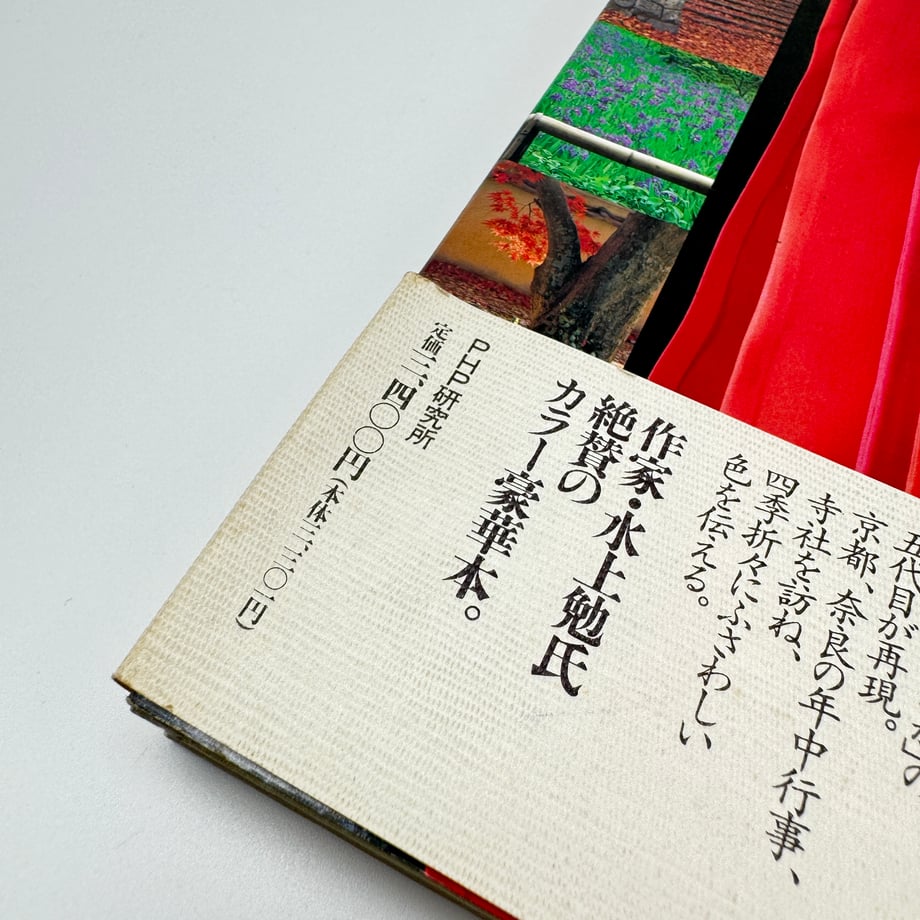 五代目が再現。
京都、奈良の年中行事、
寺社を訪ね、
四季折々にふさわしい
色を伝える。
作家・水上勉氏
絶賛の
カラー豪華本。
PHP研究所
定価三、四〇〇円(本体三、三〇一円)